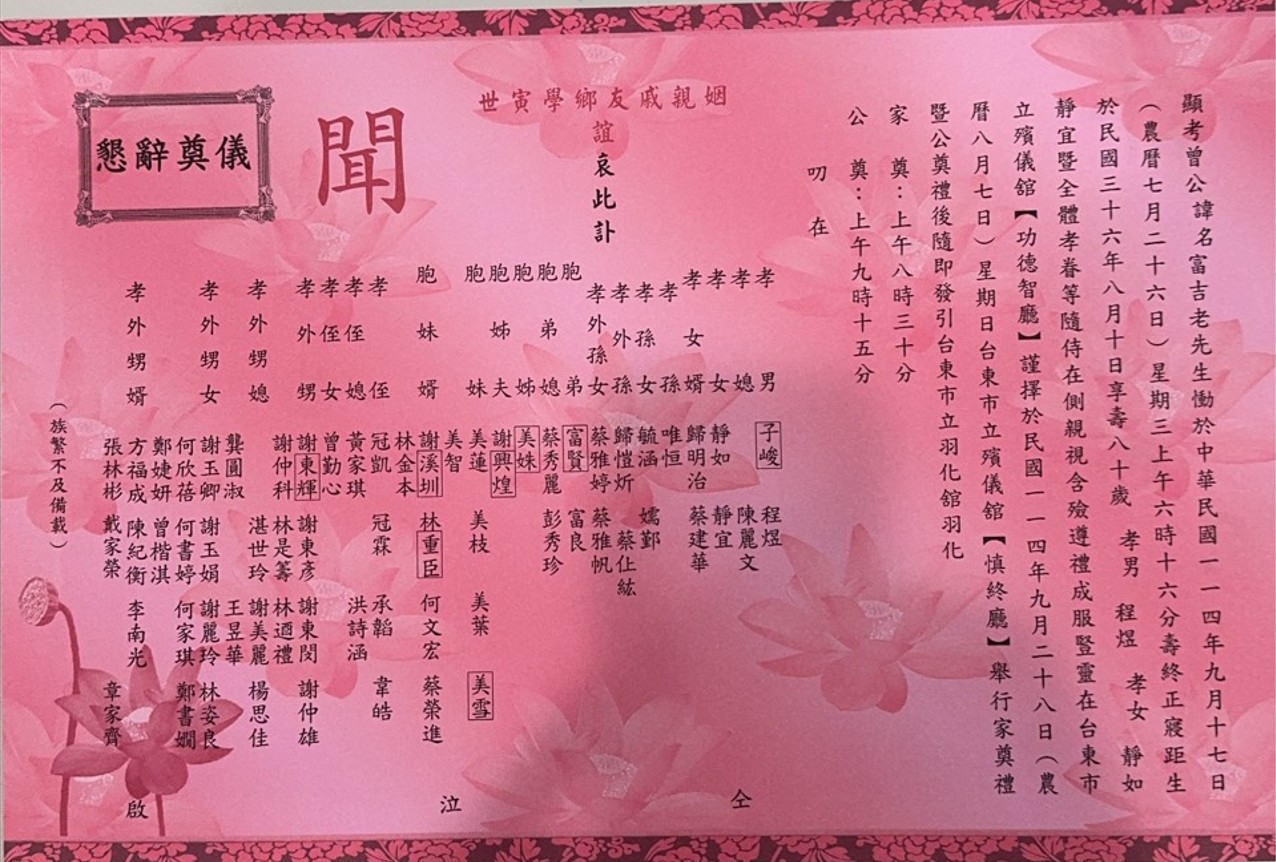 顯考曾公諱名富吉老先生慟於中華民國一一四年九月十七日
（農曆七月二十六日）星期三上午六時十六分壽終正寢距生
於民國三十六年八月十日享壽八十歲 孝男 程煜 孝女 靜如
靜宜暨全體孝眷等隨侍在側親視含殮遵禮成服豎靈在台東市
立殯儀館【功德智廳】謹擇於民國一一四年九月二十八日（農
曆八月七日）星期日台東市立殯儀館【慎終廳】舉行家奠禮
暨公奠禮後隨即發引台東市立羽化館羽化
家 奠：上午八時三十分
公 奠：上午九時十五分
叨在
姻親戚友鄉學寅世
誼哀此訃
聞
孝男 子峻 程煜
孝媳 陳麗文
孝女 靜如 靜宜
孝女婿 歸明治 蔡建華
孝孫 唯恒
孝孫女 毓涵 嬬鄞
孝外孫 歸愷炘 蔡仩紘
孝外孫女 蔡雅婷 蔡雅帆
胞弟 富賢 富良
胞弟媳 蔡秀麗 彭秀珍
胞姊 美妹
胞姊夫 謝興煌
胞妹 美蓮 美枝 美葉 美雪
美智
胞妹婿 謝溪圳 林重臣 何文宏 蔡榮進
林金本
孝侄 冠凱 冠霖 承韜 韋皓
孝侄媳 黃家琪 洪詩涵
孝侄女 曾勤心
孝外甥 謝東輝 謝東彥 謝東閔 謝仲雄
謝仲科 林是籌 林迺禮
孝外甥媳 湛世玲 謝美麗 楊思佳
龔圓淑 王昱華
孝外甥女 謝玉卿 謝玉娟 謝麗玲 林姿良
何欣蓓 何書婷 何家琪 鄭書嫺
鄭婕妍 曾楷淇
孝外甥婿 方福成 陳紀衡 李南光
張林彬 戴家榮 章家齊
仝 泣 啟
（族繁不及備載）
懇辭奠儀